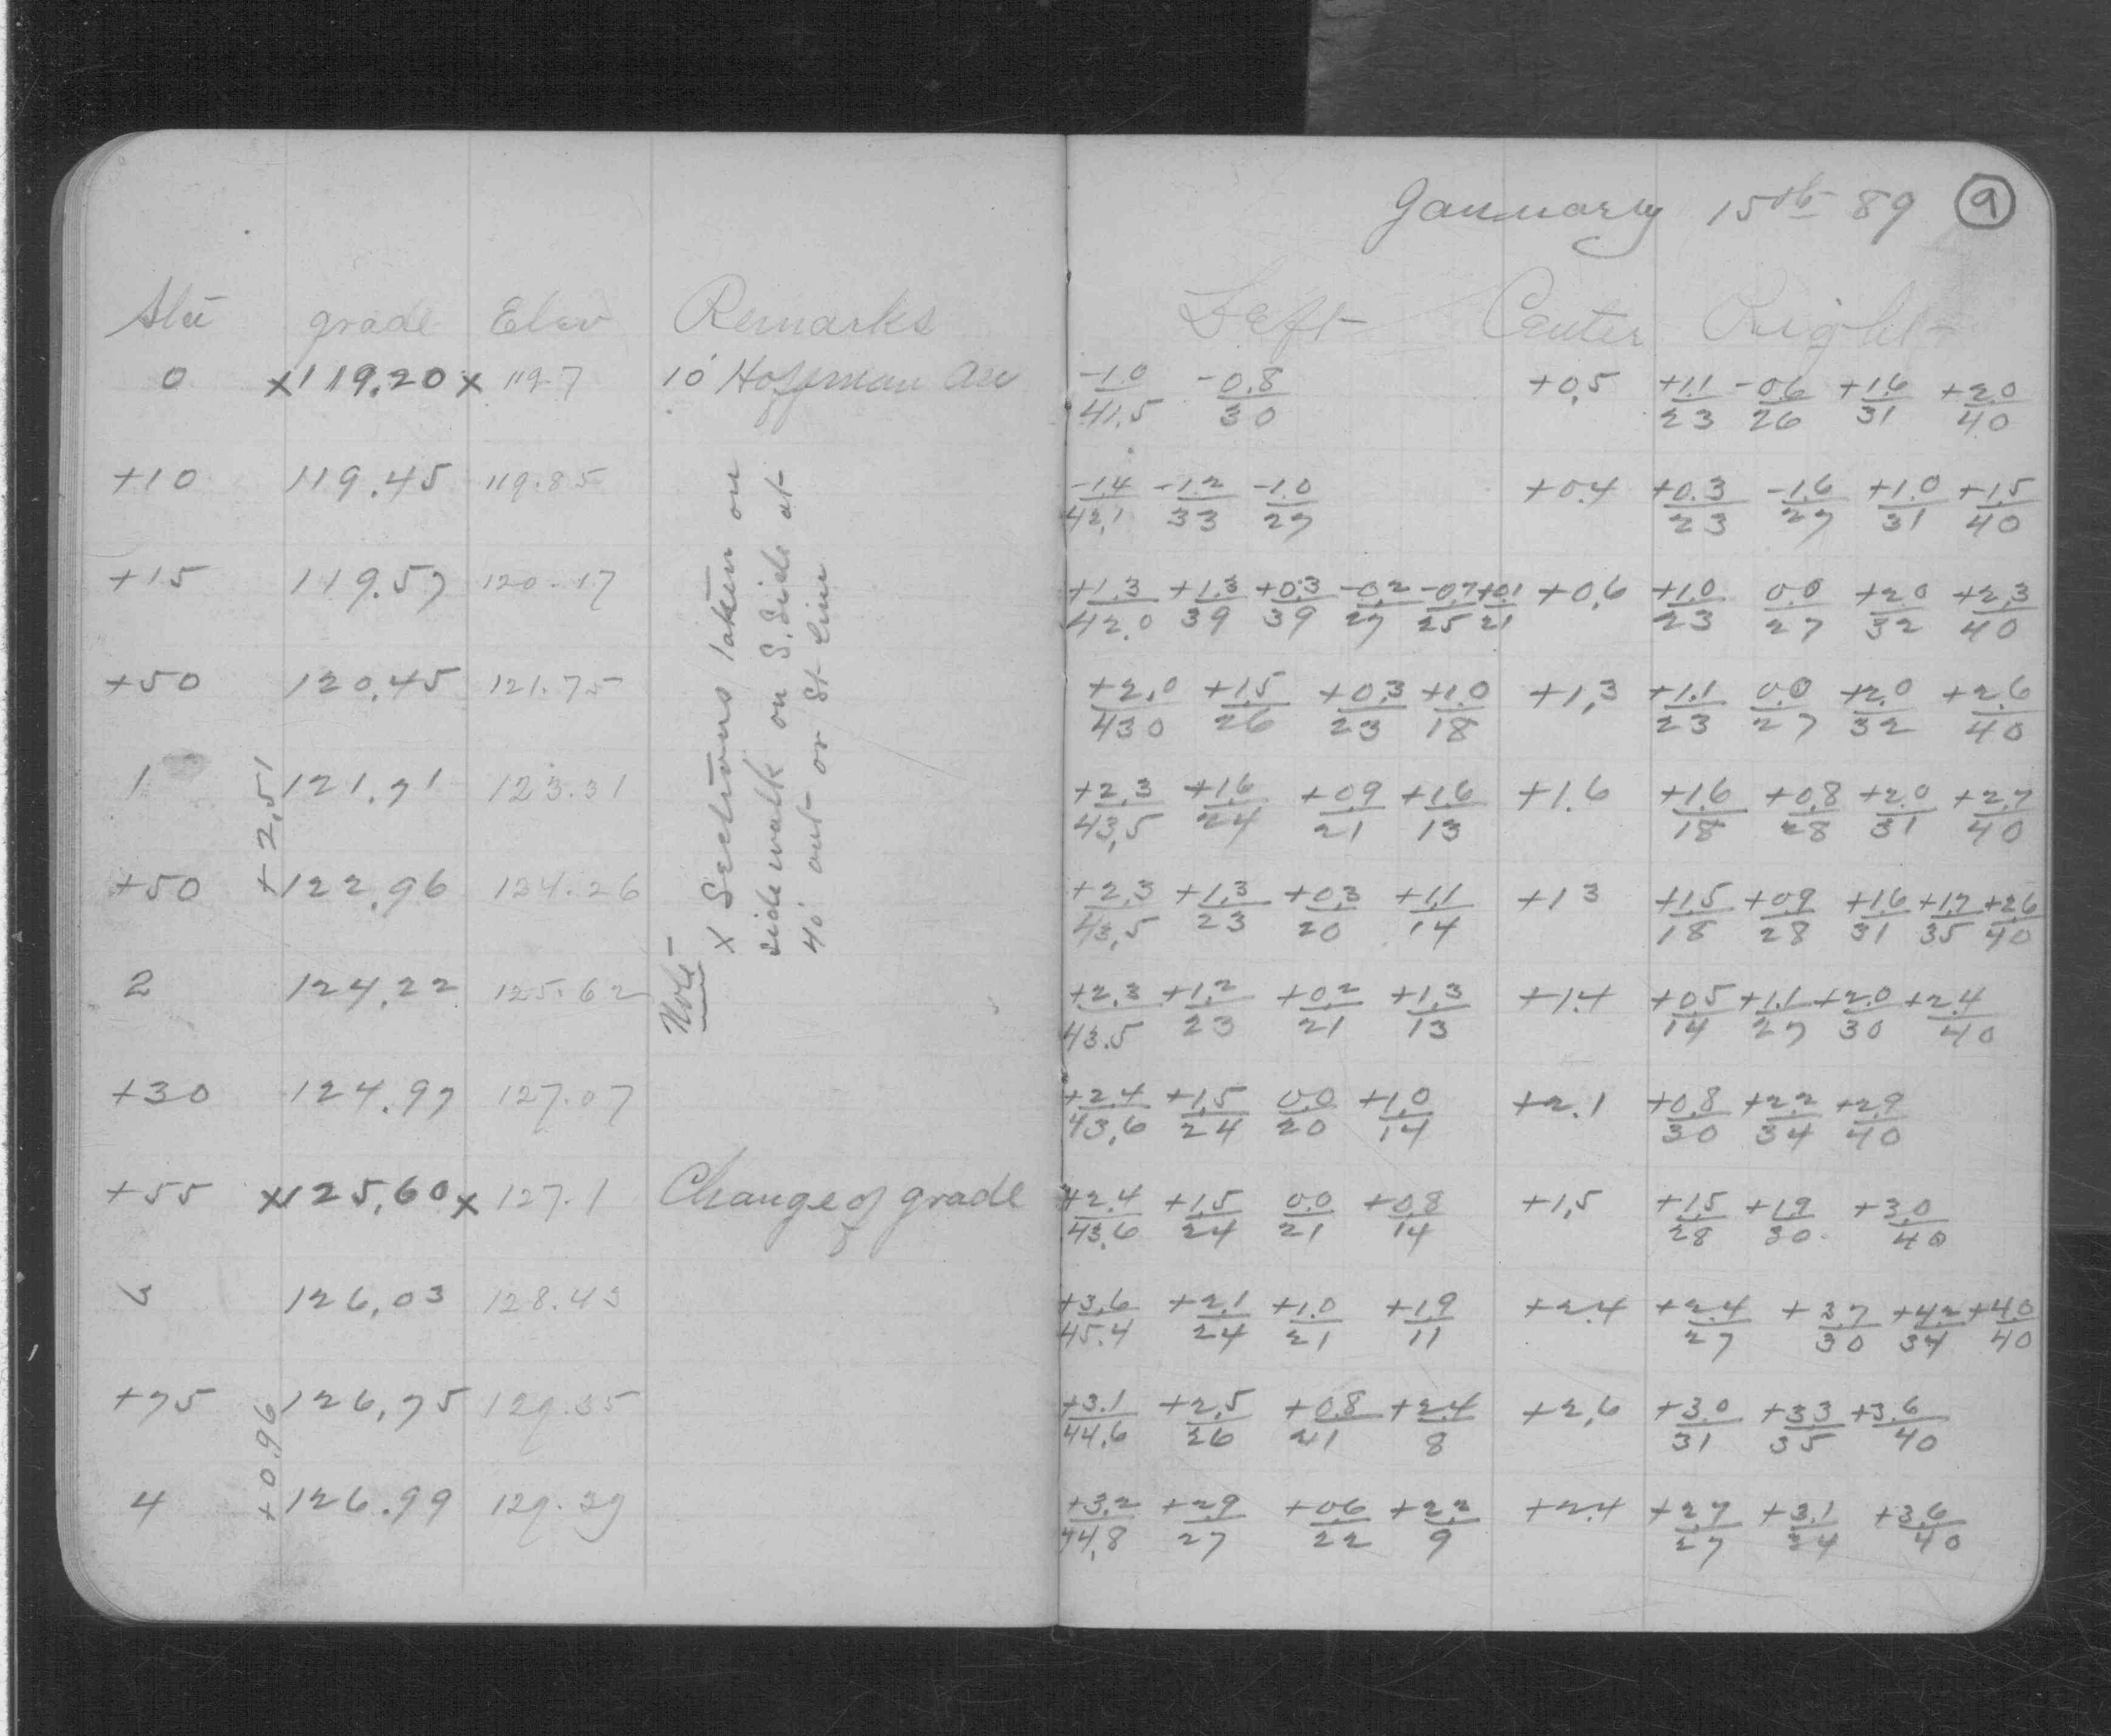 January 15th 89 9
Sta grade Elev Remarks Left Center Right
0 x119.20x 119.7 10' Hoffman Av -1.0/41.5 -0.8/30 +0.5 +1.1/23 -0.6/26 +1.6/31 +2.0/40
+10 119.45 119.85 -1.4/42.1 -1.2/33 -1.0/27 +0.4 +0.3/23 -1.6/27 +1.0/31 +1.5/40
+15 119.57 120.17 +1.3/42.0 +1.3/39 +0.3/39 -0.2/27 -0.7/25 +0.1/21 +0.6 +1.0/23 0.0/27 +2.0/32 +2.3/40
+50 120.45 121.75 +2.0/43.0 +1.5/26 +0.3/23 +1.0/18 +1.3 +1.1/23 0.0/27 +2.0/32 +2.6/40
1 121.71 123.31 +2.3/43.5 +1.6/24 +0.9/21 +1.6/13 +1.6 +1.6/18 +0.8/28 +2.0/31 +2.7/40
+2.51
+50 +122.96 124.26 +2.3/43.5 +1.3/23 +0.3/20 +1.1/14 +1 3 +1.5/18 +0.9/28 +1.6/31 +1.7/35 +2.6/40
2 124.22 125.62 +2.3/43.5 +1.2/23 +0.2/21 +1.3/13 +1.4 +0.5/14 +1.1/27 +2.0/30 +2.4/40
+30 124.97 127.07 +2.4/43.6 +1.5/24 0.0/20 +1.0/14 +2.1 +0.8/30 +2.2/34 +2.9/40
+55 x125.60x 127.1 Change of grade +2.4/43.6 +1.5/24 0.0/21 +0.8/14 +1.5 +1.5/28 +1.9/30 +3.0/40
3 126.03 128.43 +3.6/45.4 +2.1/24 +1.0/21 +1.9/11 +2.4 +2.4/27 +3.7/30 +4.2/34 +4.0/40
+75 126.75 129.35 +3.1/44.6 +2.5/26 +0.8/21 +2.4/8 +2.6 +3.0/31 +3.3/35 +3.6/40
+0.96
4 126.99 129.39 +3.2/44.8 +2.9/27 +0.6/22 +2.2/9 +2.4 +2.7/27 +3.1/34 +3.6/40
Note-
x Sections taken on
sidewalk on S. Side at
40' out or St line